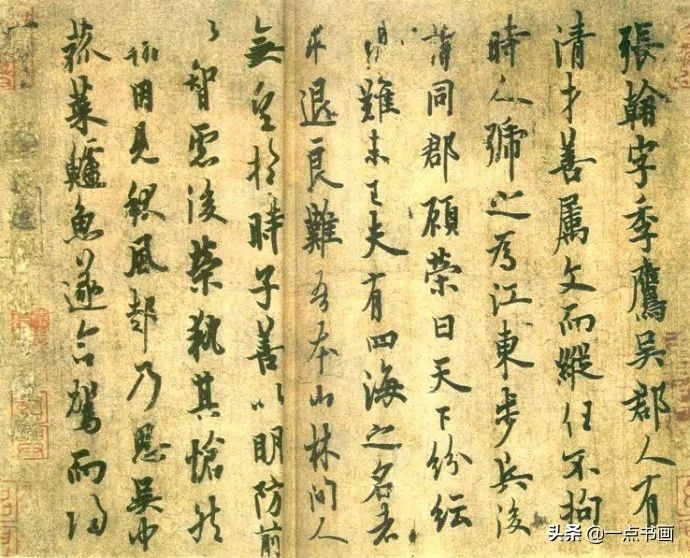 張翰字季鷹吳郡人有
清才善属文而縱任不拘
時人號之為江東步兵後
謂同郡顧榮曰天下紛紜
禍難未已夫有四海之名者
求退良難吾本山林間人
無望於時子善以明防前
以智慮後榮執其愴然
翰因見秋風起乃思吳中
菰菜鱸魚遂命駕而歸
头条 @一点书画